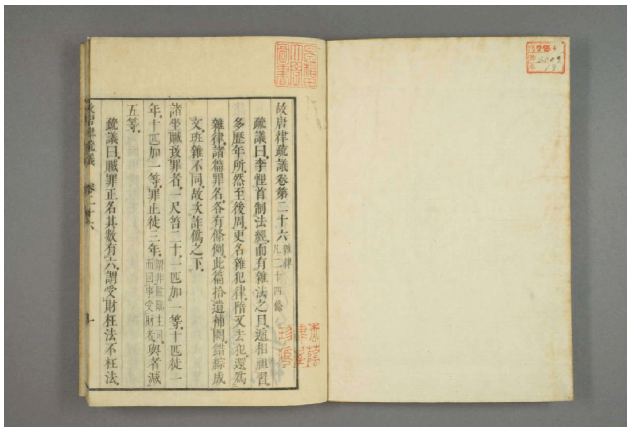 故唐律疏議卷第二十六 雜律 凡二十四條
疏議曰李悝首制法經而有雜法之目遞相祖習
多歷年所然至後周更名雜犯律隋又去犯還爲
雜律諸篇罪名各有條例此篇拾遺補闕錯綜成
文班雜不同故次詐僞之下
諸坐贓致罪者一尺笞二十一匹加一等十匹徒一
年十匹加一等罪止徒三年 謂非監臨主司而因事受財者 與者減
五等
疏議曰贓罪正名其數有六謂受財枉法不枉法